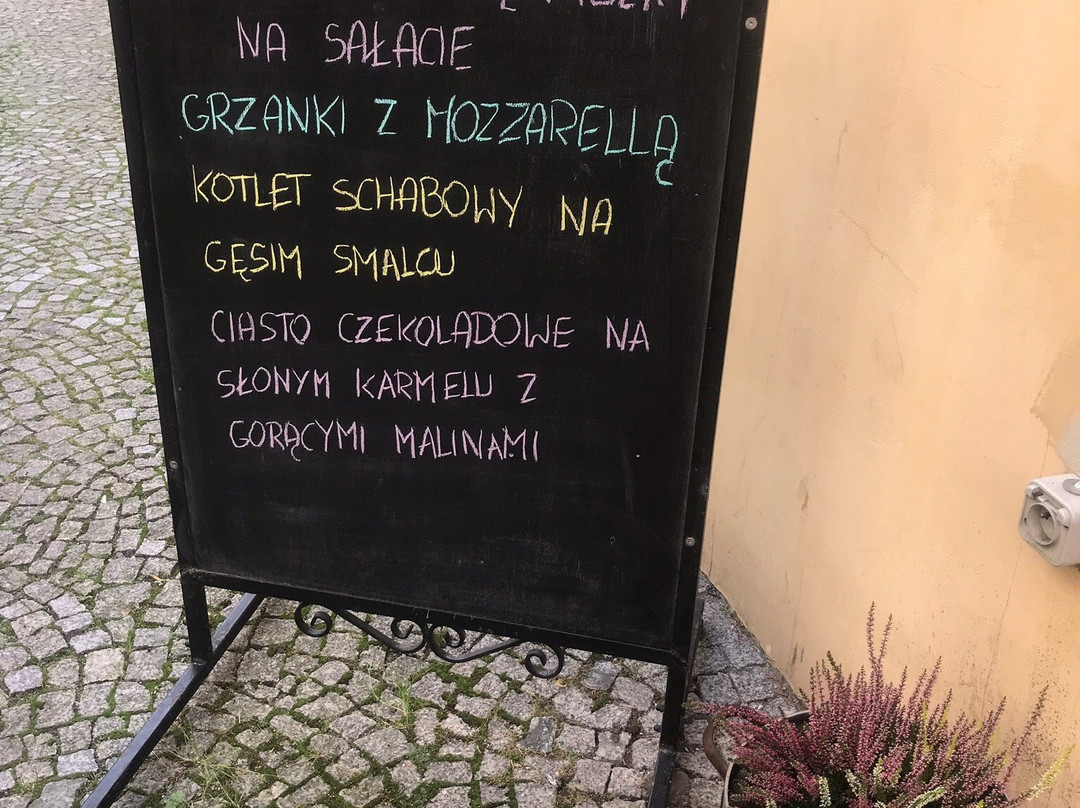 NA SAŁACIE
GRZANKI Z MOZZARELLĄ
KOTLET SCHABOWY NA
GĘSIM SMALCU
CIASTO CZEKOLADOWE NA
SŁONYM KARMELU Z
GORĄCYMI MALINAMI